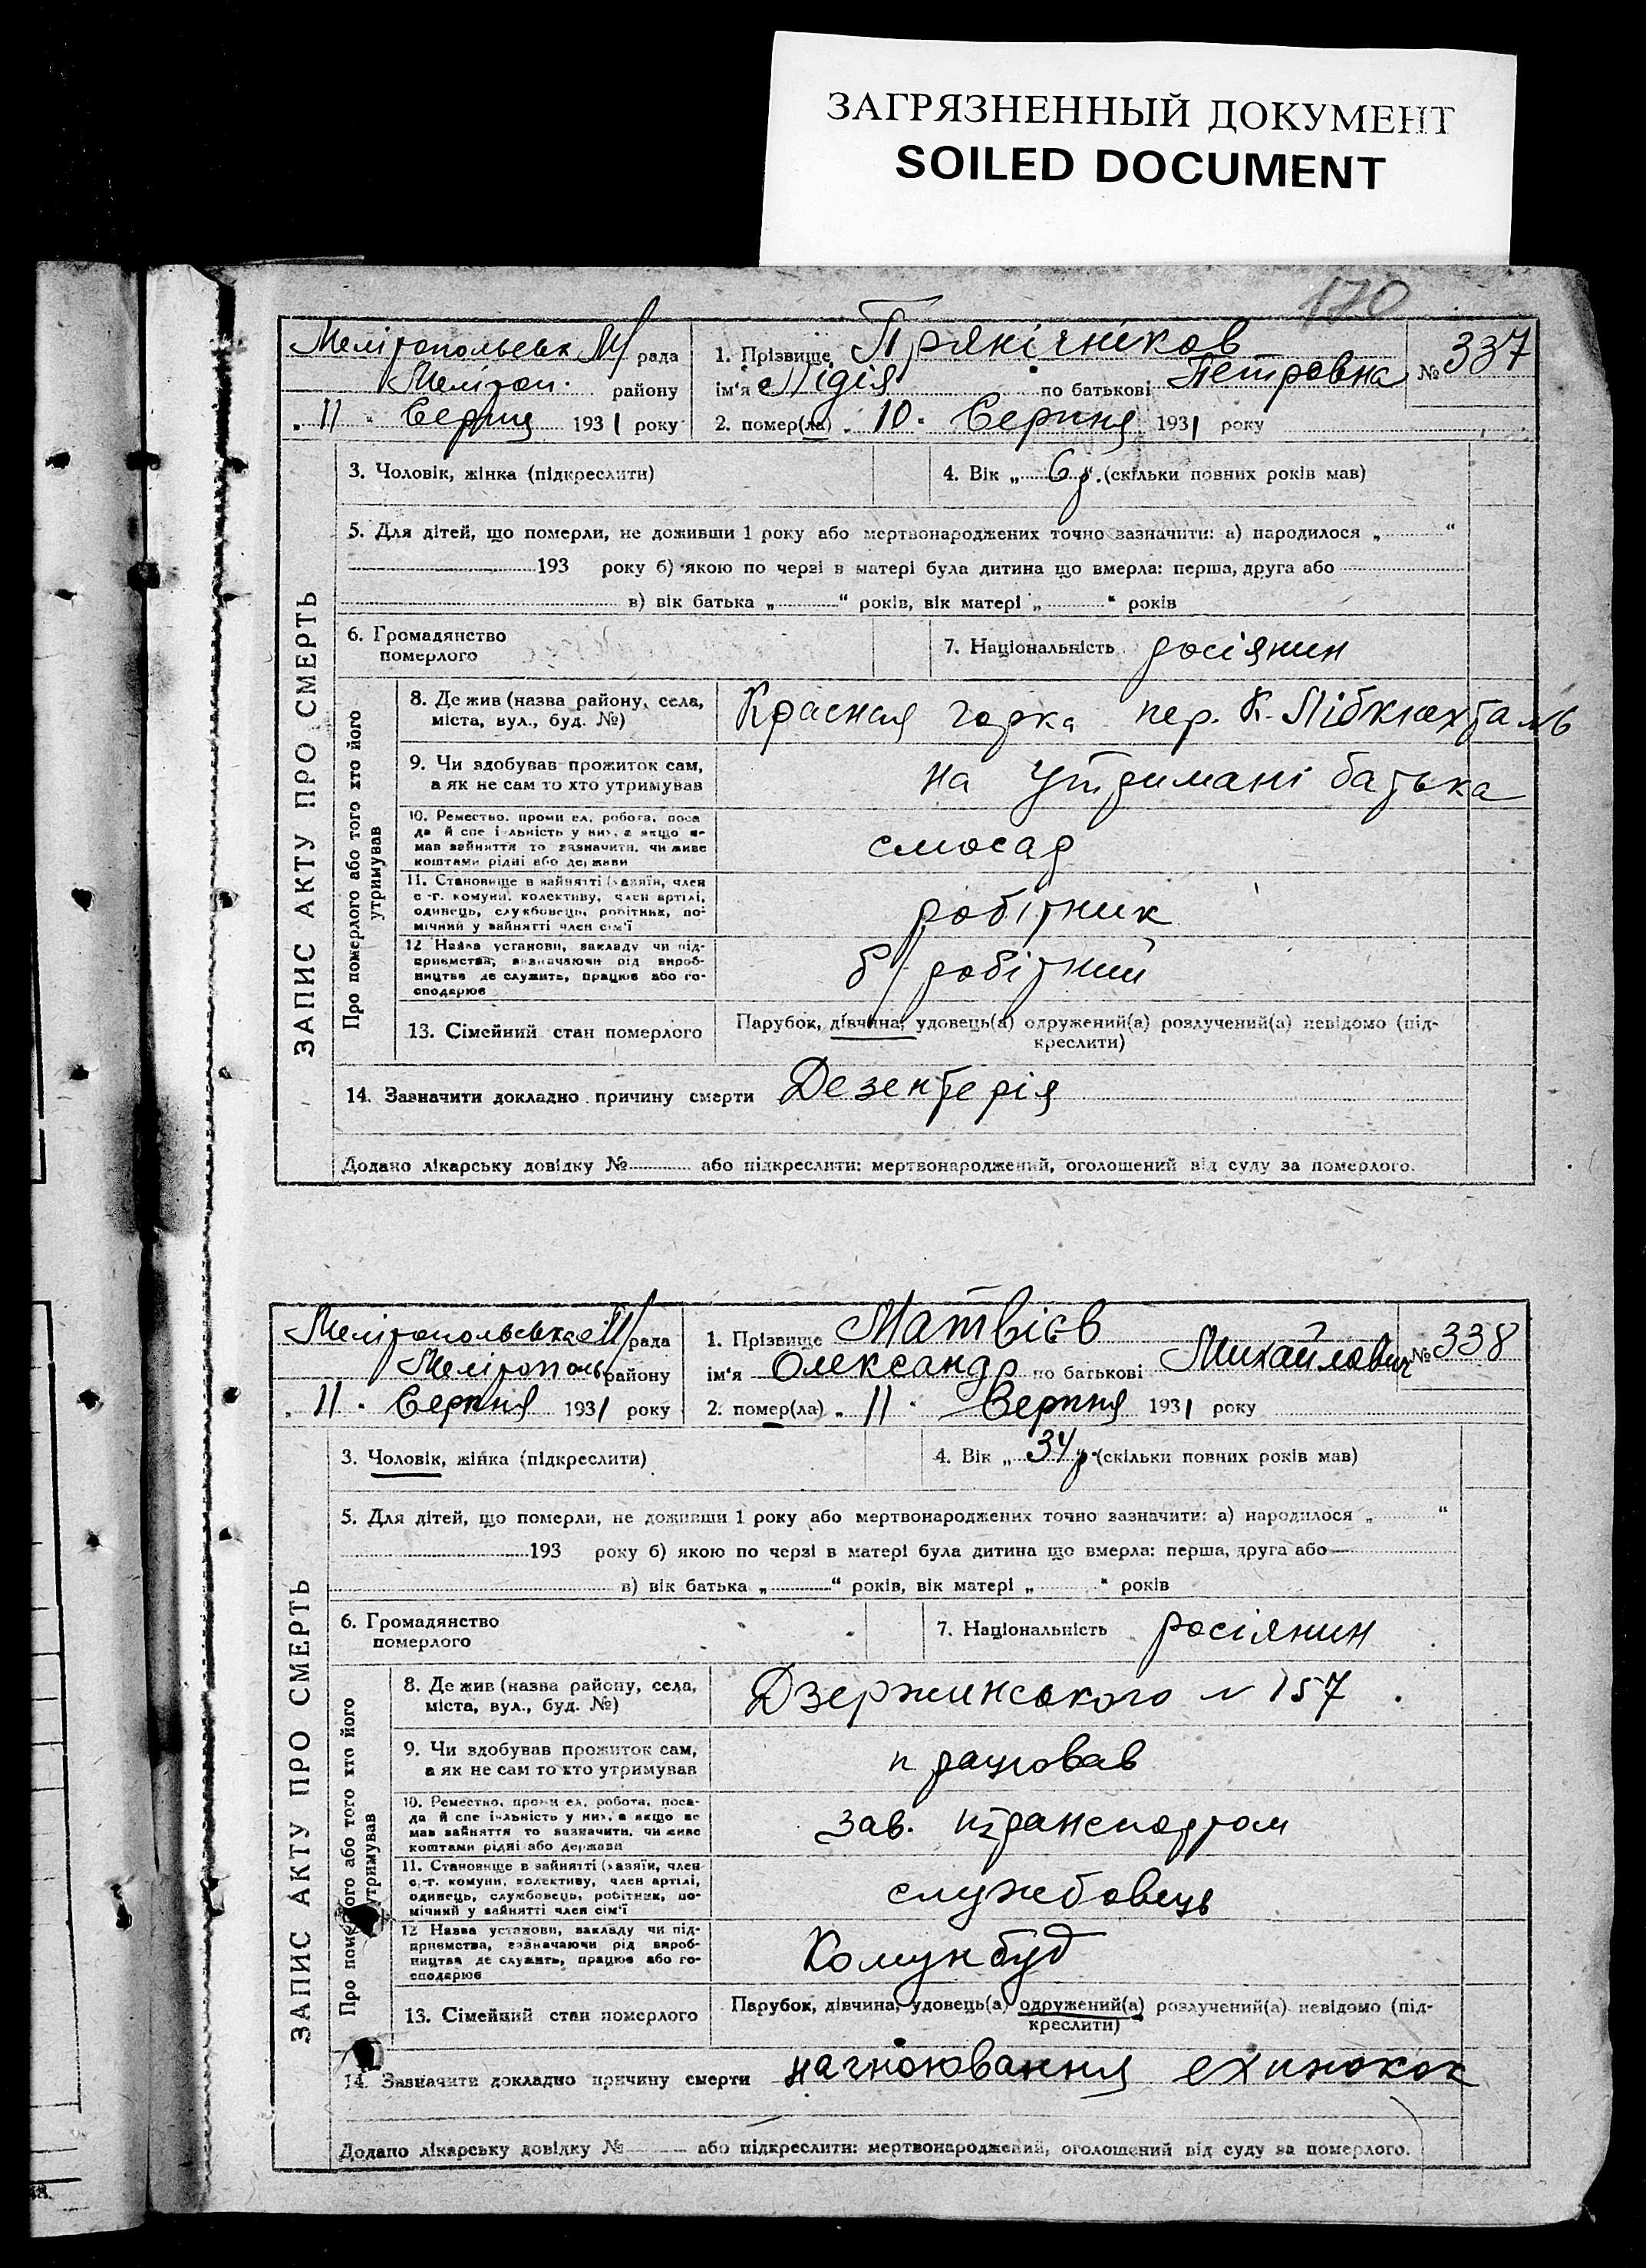 ЗАГРЯЗНЕННЫЙ ДОКУМЕНТ
SOILED DOCUMENT
170
Мелітопольськ М/рада
Меліт оп. району
„ 11 " Серпня 1931 року
1. Прізвище Прянічніков
ім'я Лідія по батькові Петровна
№ 337
2. помер(ла) „ 10 " Серпня 1931 року
ЗАПИС АКТУ ПРО СМЕРТЬ
3. Чоловік, жінка (підкреслити)
4. Вік „ 6 р. " (скільки повних років мав)
5. Для дітей, що померли, не доживши 1 року або мертвонароджених точно зазначити: а) народилося „ "
193 року б) якою по черзі в матері була дитина що вмерла: перша, друга або
в) вік батька „ " років, вік матері „ " років
6. Громадянство
померлого
7. Національність росіянин
Про померлого або того хто його
утримував
8. Де жив (назва району, села,
міста, вул., буд. №)
Красная горка пер. К. Лібкнехта №6
9. Чи здобував прожиток сам,
а як не сам то хто утримував
на утримані батька
10. Ремество, промисел, робота, поса
да й спеціяльність у них, а якщо не
мав зайняття то зазначити, чи живе
коштами рідні або держави
слюсар
11. Становище в зайнятті (хазяїн, член
с.-г. комуни, колективу, член артілі,
одинець, службовець, робітник, по-
мічний у зайнятті член сім'ї
робітник
12 Назва установи, закладу чи під-
приємства, зазначаючи рід вироб-
ництва де служить, працює або го-
сподарює
б/робітний
13. Сімейний стан померлого
Парубок, дівчина, удовець(а) одружений(а) розлучений(а) невідомо (під-
креслити)
14. Зазначити докладно причину смерти Дезентерія
Додано лікарську довідку № або підкреслити: мертвонароджений, оголошений від суду за померлого.
Мелітопольська М/рада
Мелітополь району
„ 11 " Серпня 1931 року
1. Прізвище Матвієв
ім'я Олександр по батькові Михайлович
№ 338
2. помер(ла) „ 11 " Серпня 1931 року
ЗАПИС АКТУ ПРО СМЕРТЬ
3. Чоловік, жінка (підкреслити)
4. Вік „ 34 р. " (скільки повних років мав)
5. Для дітей, що померли, не доживши 1 року або мертвонароджених точно зазначити: а) народилося „ "
193 року б) якою по черзі в матері була дитина що вмерла: перша, друга або
в) вік батька „ " років, вік матері „ " років
6. Громадянство
померлого
7. Національність росіянин
Про померлого або того хто його
утримував
8. Де жив (назва району, села,
міста, вул., буд. №)
Дзержинського № 157
9. Чи здобував прожиток сам,
а як не сам то хто утримував
працював
10. Ремество, промисел, робота, поса-
да й спеціяльність у них, а якщо не
мав зайняття то зазначити, чи живе
коштами рідні або держави
зав. транспортом
11. Становище в зайнятті (хазяїн, член
с.-г. комуни, колективу, член артілі,
одинець, службовець, робітник, по-
мічний у зайнятті член сім'ї
службовець
12 Назва установи, закладу чи під-
приємства, зазначаючи рід вироб-
ництва де служить, працює або го-
сподарює
Комунбуд
13. Сімейний стан померлого
Парубок, дівчина, удовець(а) одружений(а) розлучений(а) невідомо (під-
креслити)
14. Зазначити докладно причину смерти нагноювання ехинокок
Додано лікарську довідку № або підкреслити: мертвонароджений, оголошений від суду за померлого.